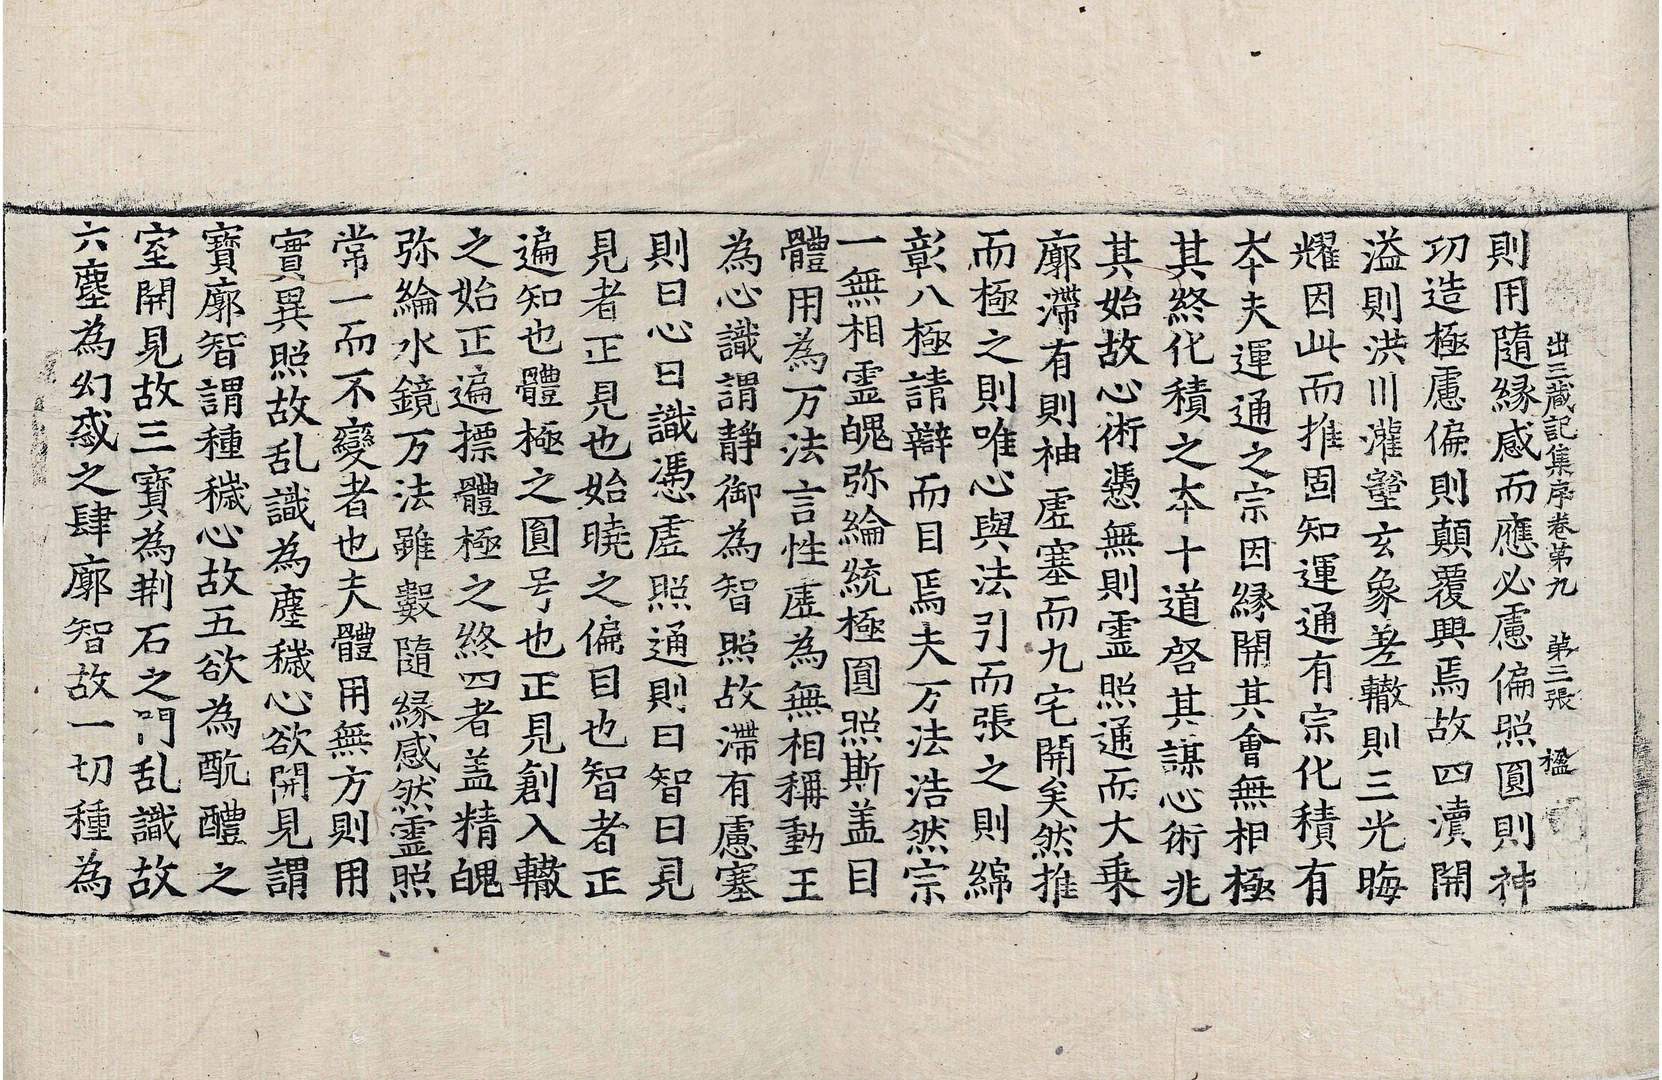 出三藏記集序卷第九 第三張 楹
則用隨緣感而應必慮偏照圓則神
功造極慮偏則顛覆興焉故四瀆開
溢則洪川灌壑玄象差轍則三光晦
耀因此而推固知運通有宗化積有
本夫運通之宗因緣開其會無相極
其終化積之本十道啓其謀心術兆
其始故心術憑無則靈照通而大乗
廓滯有則神虛塞而九宅開矣然推
而極之則唯心與法引而張之則綿
彰八極請辯而目焉夫万法浩然宗
一無相靈魄弥綸統極圓照斯盖目
體用為万法言性虛為無相稱動王
為心識謂静御為智照故滯有慮塞
則曰心曰識憑虛照通則曰智曰見
見者正見也始曉之偏目也智者正
遍知也體極之圓号也正見創入轍
之始正遍摽體極之終四者盖精魄
弥綸水鏡万法雖數隨緣感然靈照
常一而不變者也夫體用無方則用
實異照故乱識為塵穢心欲開見謂
寶廓智謂種穢心故五欲為酖醴之
室開見故三寶為荆石之門乱識故
六塵為幻惑之肆廓智故一切種為